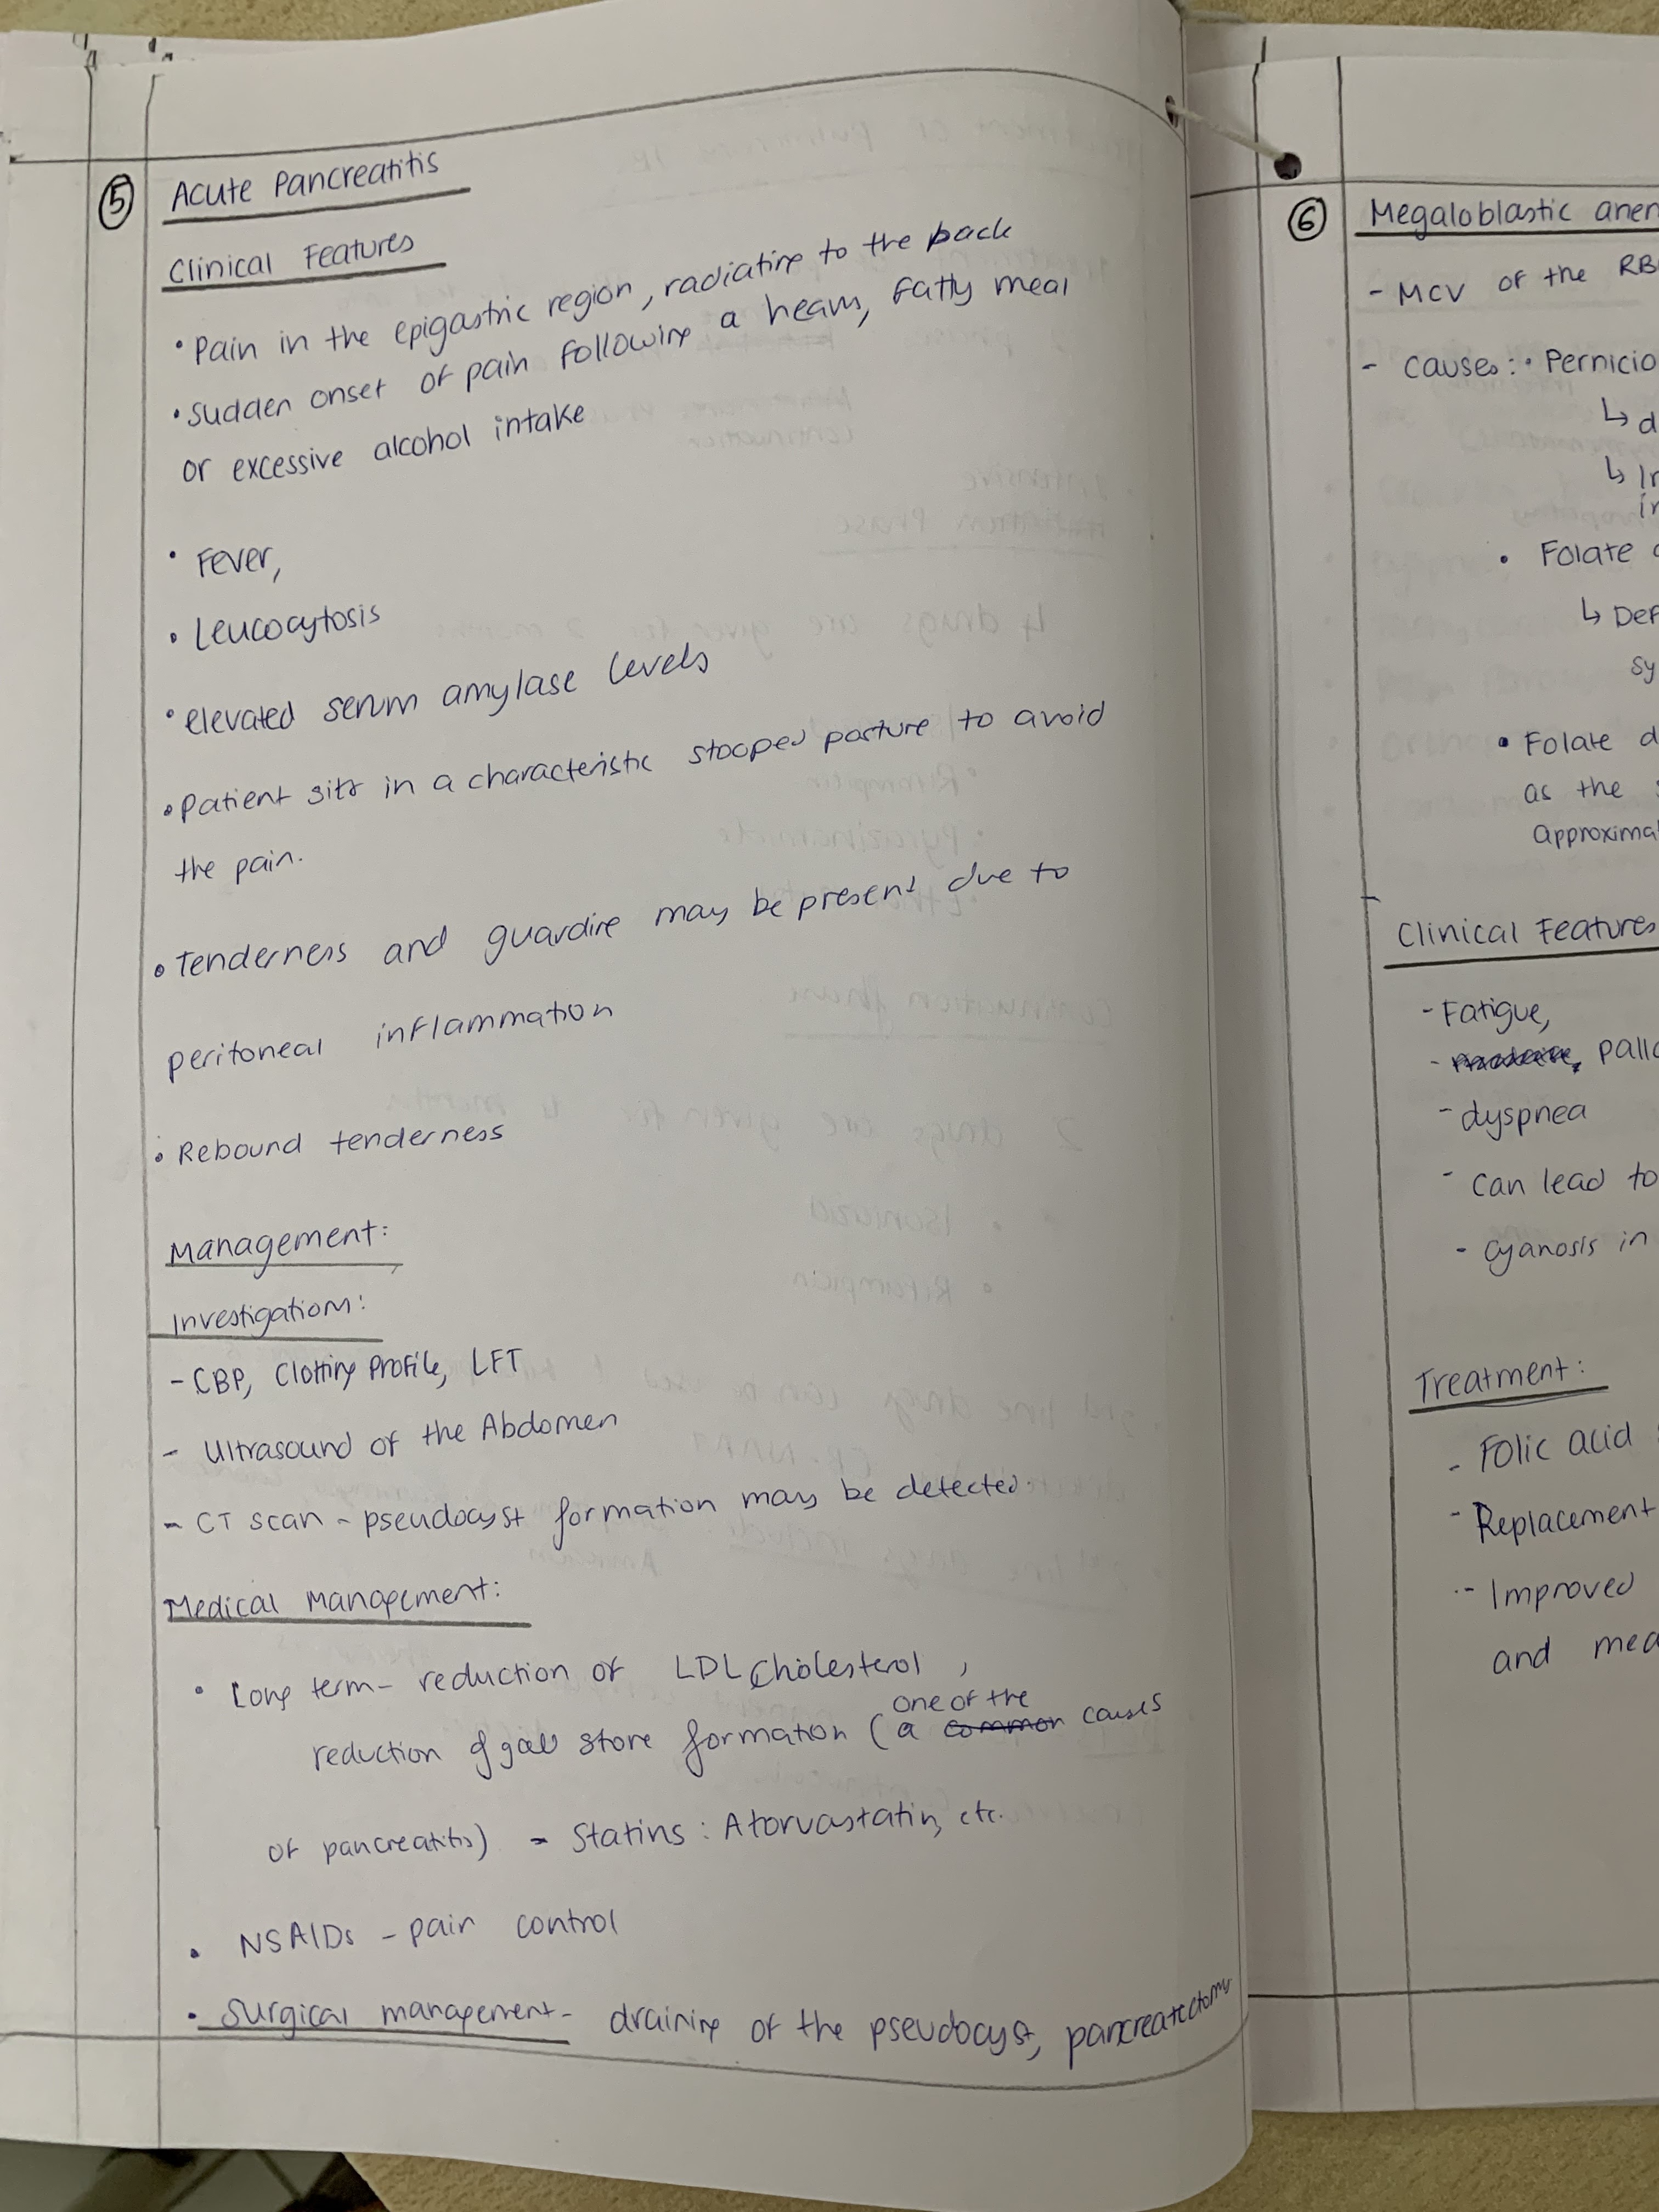 ⑤ Acute Pancreatitis
Clinical Features
• Pain in the epigastric region, radiating to the back
• Sudden onset of pain following a heavy, fatty meal
or excessive alcohol intake
• Fever,
• Leucocytosis
• elevated serum amylase levels
• Patient sits in a characteristic stooped posture to avoid
the pain.
• Tenderness and guarding may be present due to
peritoneal inflammation
• Rebound tenderness
Management:
Investigations:
- CBP, Clotting Profile, LFT
- Ultrasound of the Abdomen
- CT scan - pseudocyst formation may be detected.
Medical Management:
• Long term - reduction of LDL Cholesterol,
one of the
reduction of gall stone formation (a common causes
of pancreatitis) - Statins : Atorvastatin, etc.
• NSAIDs - pain control
• Surgical management - draining of the pseudocyst, pancreatectomy
⑥ Megaloblastic anem
- MCV of the RB
- Causes : • Pernicio
↳ d
↳ In
in
• Folate
↳ Def
sy
• Folate d
as the
approxima
Clinical Features
- Fatigue,
- pall
- dyspnea
- can lead to
- cyanosis in
Treatment:
- Folic acid
- Replacement
- Improved
and med